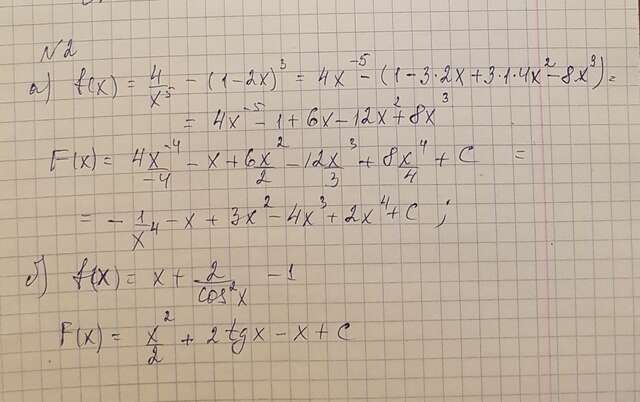 N2
а) f(x) = 4/x⁵ − (1−2x)³ = 4x⁻⁵ − (1−3·2x+3·1·4x²−8x³) =
= 4x⁻⁵ − 1 + 6x − 12x² + 8x³
F(x) = 4x⁻⁴/−4 − x + 6x²/2 − 12x³/3 + 8x⁴/4 + C =
= − 1/x⁴ − x + 3x² − 4x³ + 2x⁴ + C ;
б) f(x) = x + 2/cos²x − 1
F(x) = x²/2 + 2tgx − x + C